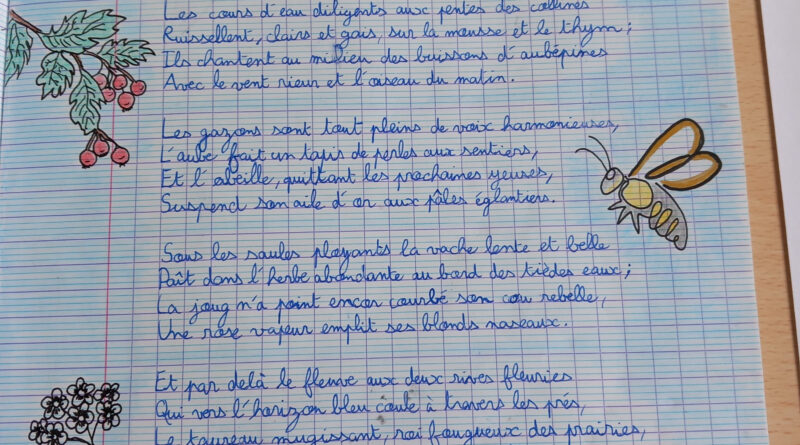 Les cours d'eau diligents aux pentes des collines
Ruissellent, clairs et gais, sur la mousse et le thym ;
Ils chantent au milieu des buissons d'aubépines
Avec le vent rieur et l'oiseau du matin.
Les gazons sont tout pleins de voix harmonieuses,
L'aube fait un tapis de perles aux sentiers,
Et l'abeille, quittant les prochaines yeuses,
Suspend son aile d'or aux pâles églantiers.
Sous les saules ployants la vache lente et belle
Paît dans l'herbe abondante au bord des tièdes eaux ;
La joug n'a point encor courbé son cou rebelle,
Une rose vapeur emplit ses blonds naseaux.
Et par delà le fleuve aux deux rives fleuries
Qui vers l'horizon bleu coule à travers les prés,
Le taureau mugissant, roi fougueux des prairies,